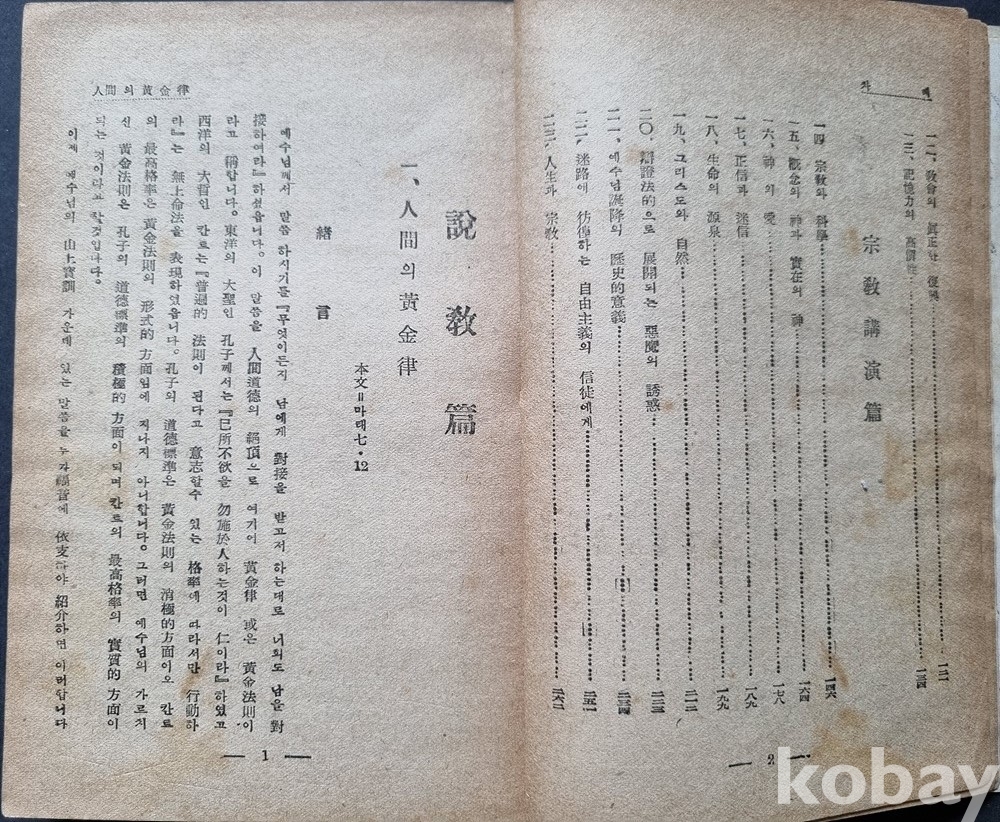 차 례
一二、敎會의 眞正한 復興…一二一
一三、記憶力의 高價性…一三四
宗敎講演篇
一四、宗敎와 科學…一四六
一五、觀念의 神과 實在의 神…一六四
一六、神의 愛…一七八
一七、正信과 迷信…一八九
一八、生命의 源泉…一九九
一九、그리스도와 自然…二一三
二〇、辯證法的으로 展開되는 惡魔의 誘惑…二二三
二一、예수님誕降의 歷史的意義…二三四
二二、迷路에 彷徨하는 自由主義의 信徒에게…二五一
二三、人生과 宗敎…二六二
— 2 —
人間의 黃金律
說敎篇
一、人間의 黃金律
本文=마태七・12
緖言
예수님께서 말씀 하시기를『무엇이든지 남에게 對接을 받고저 하는대로 너희도 남을 對
接하여라』하셨읍니다。이 말씀을 人間道德의 絕頂으로 여기어 黃金律 或은 黃金法則이
라고 稱합니다。東洋의 大聖인 孔子께서는『己所不欲을 勿施於人하는것이 仁이라』하였고
西洋의 大哲인 칸트는『普遍的 法則이 된다고 意志할수 있는 格率에 따라서만 行動하
라』는 無上命法을 表現하였읍니다。孔子의 道德標準은 黃金法則의 消極的方面이오 칸트
의 最高格率은 黃金法則의 形式的 方面임에 지나지 아니합니다。그러면 예수님의 가르치
신 黃金法則은 孔子의 道德標準의 積極的 方面이 되며 칸트의 最高格率의 實質的 方面이
되는 것이다고 할것입니다。
이제 예수님의 山上寶訓 가운데 있는 말씀을 누가福音에 依支하야 紹介하면 이러합니다
— 1 —
kobay